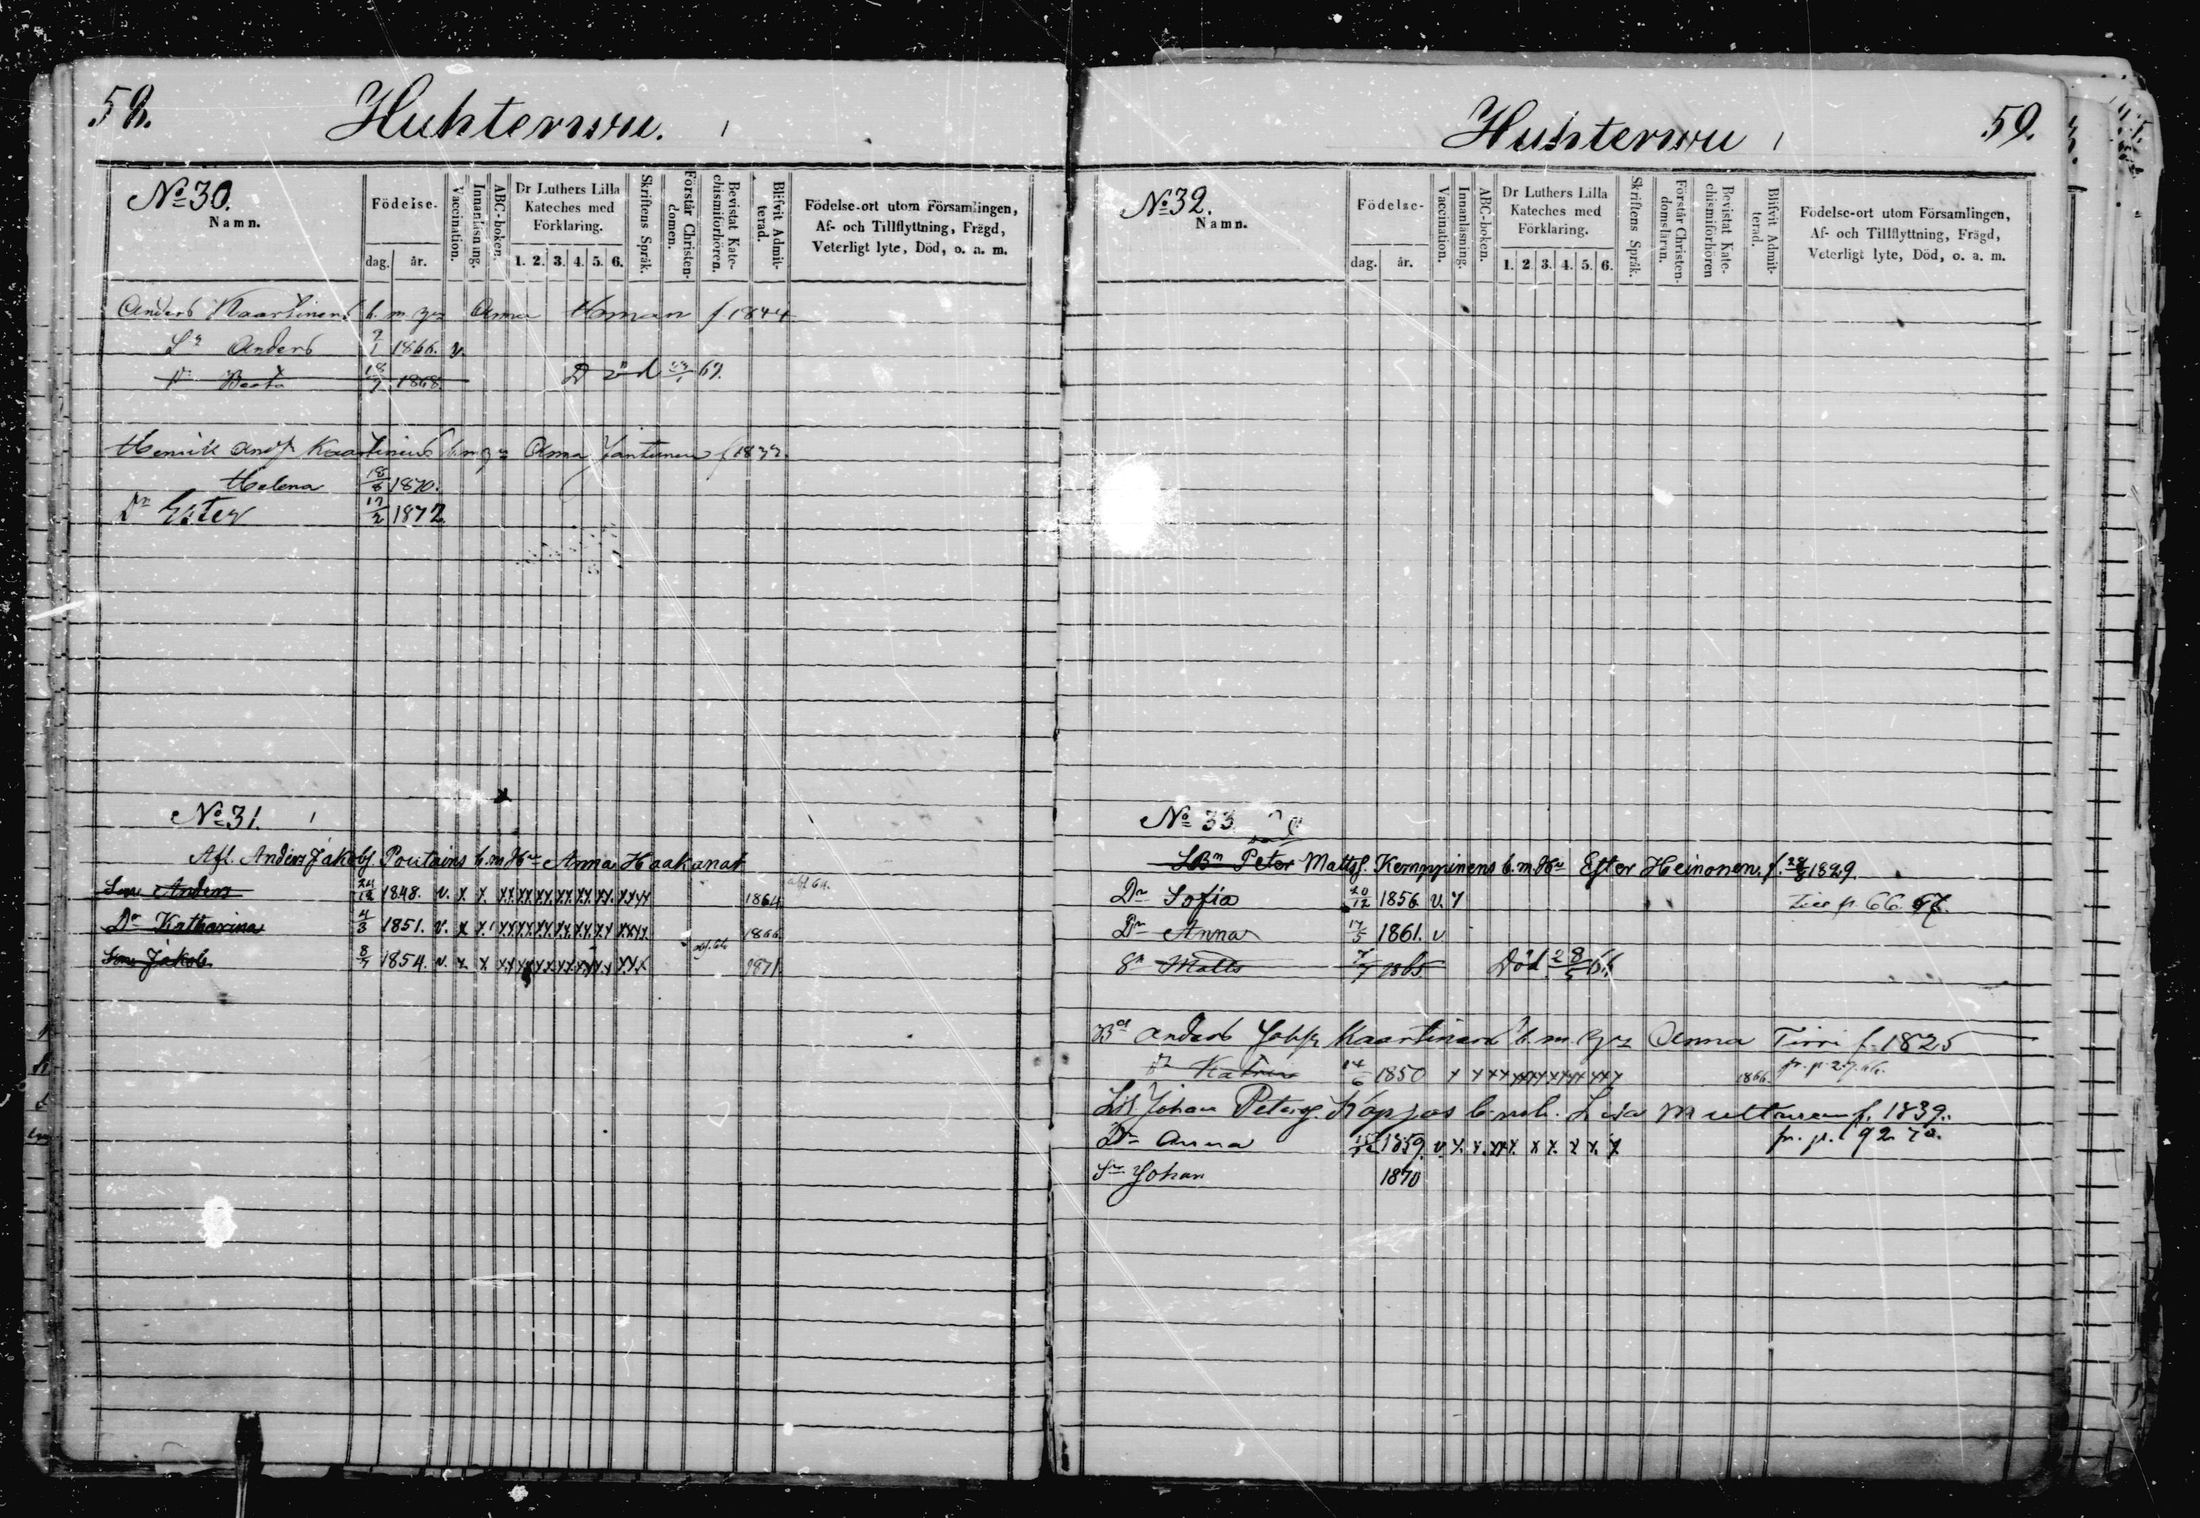 58.
Huhterwu.
No 30.
Namn.
Födelse.
dag.
år.
Vaccination.
Innanläsning.
ABC-boken.
Dr Luthers Lilla
Kateches med
Förklaring.
1. 2. 3. 4. 5. 6.
Skriftens Språk.
Förstår Christen-
domen.
Bevistat Kate-
chismiförhören.
Blifvit Admit-
terad.
Födelse-ort utom Församlingen,
Af- och Tillflyttning, Frägd,
Veterligt lyte, Död, o. a. m.
Anders Kaartinens b. m. Anna f 1844
Sn Anders 1866. v.
Dr Beata 18/7 1868 Död 69.
Henrik Kaartinens Anna Jantunen
Helena 18/8 1870.
Dr Ester 17/2 1872.
No 31.
Afl. Anders Jakobs Poutains b. m. Hu Anna Haakanat
Son Anders 24/12 1848. v. x x xx xx xx xx xx xx xxxx 1864
Dr Katharina 4/3 1851. v. x x xx xx xx xx xx xx xxxx 1866
Son Jakob 8/7 1854. v. x x xx xx xx xx xx xx xxx 1871
59.
Huhterwu
No 32.
Namn.
Födelse-
dag.
år.
Vaccination.
Innanläsning.
ABC-boken.
Dr Luthers Lilla
Kateches med
Förklaring.
1. 2. 3. 4. 5. 6.
Skriftens Språk.
Förstår Christen-
domsläran.
Bevistat Kate-
chismiförhören
Blifvit Admit-
terad.
Födelse-ort utom Församlingen,
Af- och Tillflyttning, Frägd,
Veterligt lyte, Död, o. a. m.
No 33.
Peter Mattss. Kemppinens b. m. Hu Ester Heinonen. f. 28/8 1829.
Dr Sofia 20/12 1856 v. y
Dr Anna 17/5 1861. v
Sn Matts 1865 Död 66
Anders Kaartinens b. m. Anna Tirri f. 1825
Dr Katrin 1850 x x xx xxx xxxx xxx 1866.
Johan Peterss. b. m. h. Lisa f. 1839.
Dr Anna 1859. v. x. x. xxx. x x. x x. x fr. p. 92 70.
Sn Johan 1870